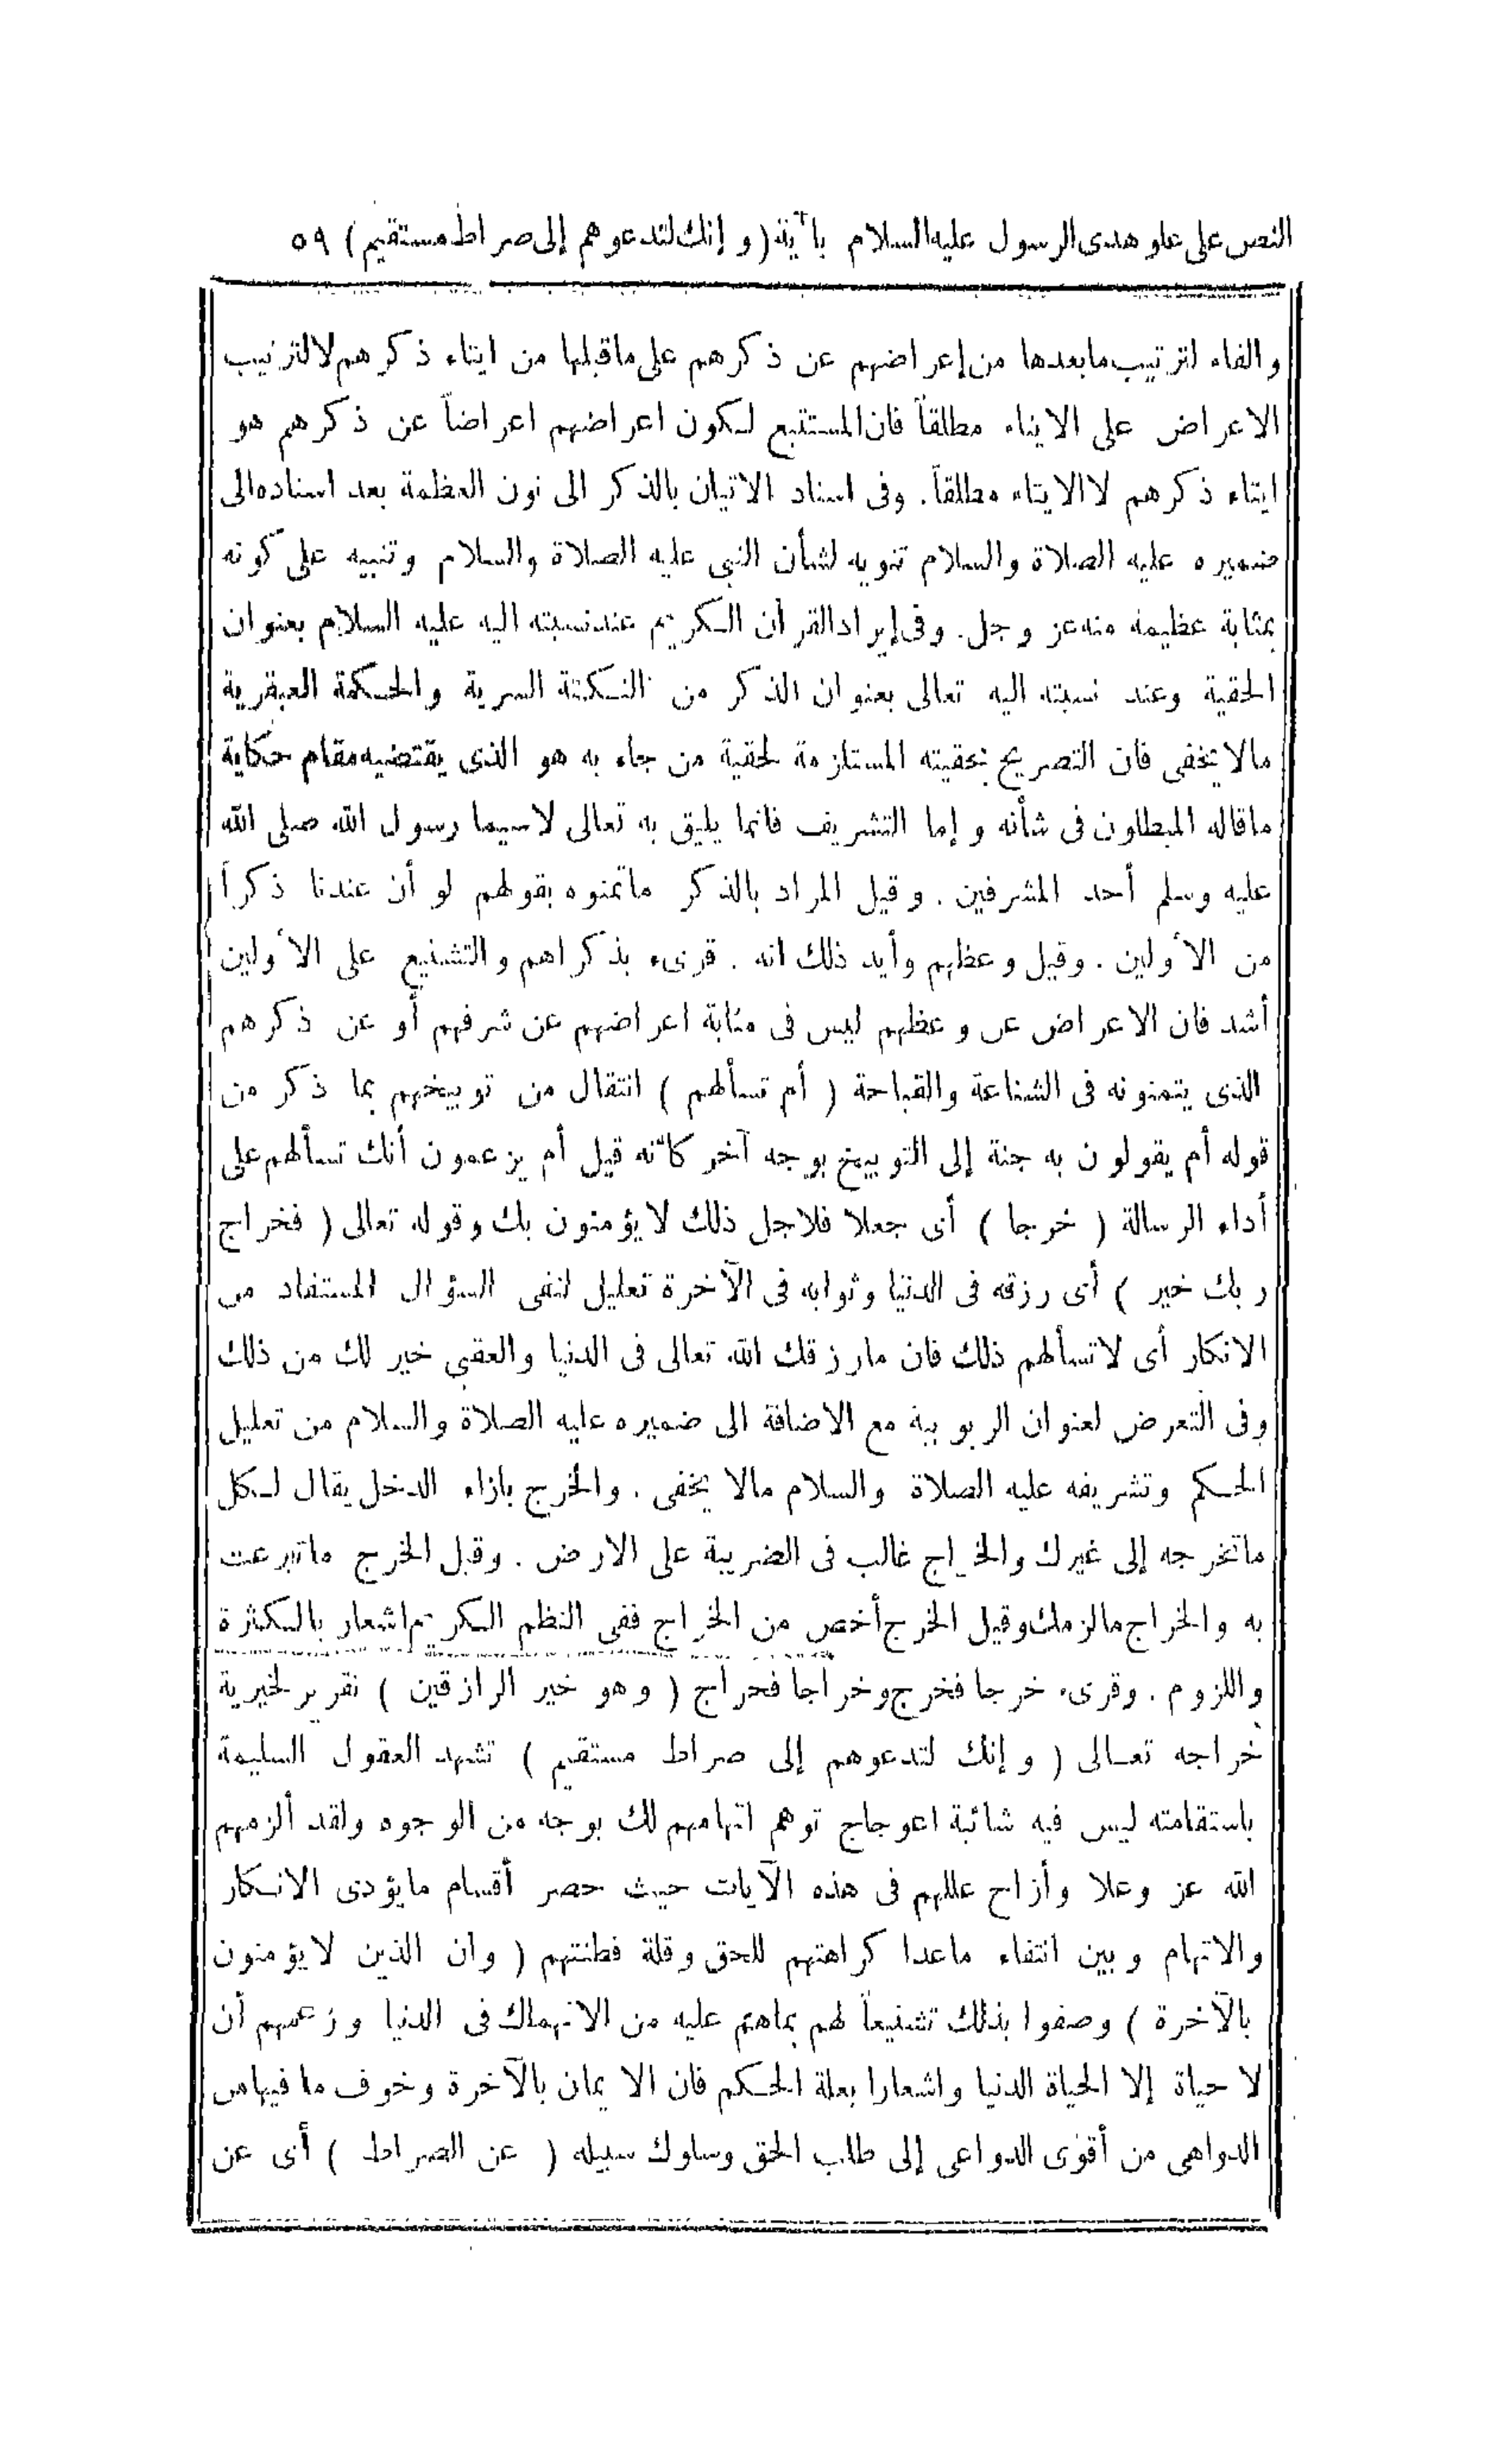 النص على علو هدى الرسول عليه السلام بآية (وإنك لتدعوهم إلى صراط مستقيم) ٥٩
والفاء لترتيب ما بعدها من إعراضهم عن ذكرهم على ما قبلها من ايتاء ذكرهم لا لترتيب
الاعراض على الايتاء مطلقاً فان المستتبع لكون اعراضهم اعراضاً عن ذكرهم هو
ايتاء ذكرهم لا الايتاء مطلقاً. وفى اسناد الاتيان بالذكر الى نون العظمة بعد اسناده الى
ضميره عليه الصلاة والسلام تنويه لشأن النبى عليه الصلاة والسلام وتنبيه على كونه
بمثابة عظيمة منه عز وجل. وفى إيراد القرآن الكريم عند نسبته اليه عليه السلام بعنوان
الحقية وعند نسبته اليه تعالى بعنوان الذكر من النكتة السرية والحكمة العبقرية
مالا يخفى فان التصريح بحقيته المستلزمة لحقية من جاء به هو الذى يقتضيه مقام حكاية
ماقاله المبطلون فى شأنه وإما التشريف فانما يليق به تعالى لاسيما رسول الله صلى الله
عليه وسلم أحد المشرفين. وقيل المراد بالذكر ماتمنوه بقولهم لو أن عندنا ذكراً
من الأولين. وقيل وعظهم وأيد ذلك انه. قرىء بذكراهم والتشنيع على الأولين
أشد فان الاعراض عن وعظهم ليس فى مثابة اعراضهم عن شرفهم أو عن ذكرهم
الذى يتمنونه فى الشناعة والقباحة ( أم تسألهم ) انتقال من توبيخهم بما ذكر من
قوله أم يقولون به جنة إلى التوبيخ بوجه آخر كأنه قيل أم يزعمون أنك تسألهم على
أداء الرسالة ( خرجا ) أى جعلا فلاجل ذلك لا يؤمنون بك وقوله تعالى ( فخراج
ربك خير ) أى رزقه فى الدنيا وثوابه فى الآخرة تعليل لنفى السؤال المستفاد من
الانكار أى لا تسألهم ذلك فان مارزقك الله تعالى فى الدنيا والعقبى خير لك من ذلك
وفى التعرض لعنوان الربوبية مع الاضافة الى ضميره عليه الصلاة والسلام من تعليل
الحكم وتشريفه عليه الصلاة والسلام مالا يخفى. والخرج بازاء الدخل يقال لكل
ماتخرجه إلى غيرك والخراج غالب فى الضريبة على الارض. وقبل الخرج ماتبرعت
به والخراج مالزمك وقيل الخرج أخص من الخراج ففى النظم الكريم اشعار بالكثرة
واللزوم. وقرىء خرجا فخرج وخراجا فخراج ( وهو خير الرازقين ) تقرير لخيرية
خراجه تعالى ( وإنك لتدعوهم إلى صراط مستقيم ) تشهد العقول السليمة
باستقامته ليس فيه شائبة اعوجاج توهم اتهامهم لك بوجه من الوجوه ولقد ألزمهم
الله عز وعلا وأزاح عللهم فى هذه الآيات حيث حصر أقسام مايؤدى الانكار
والاتهام وبين انتفاء ماعدا كراهتهم للحق وقلة فطنتهم ( وان الذين لا يؤمنون
بالآخرة ) وصفوا بذلك تشنيعاً لهم بماهم عليه من الانهماك فى الدنيا وزعمهم أن
لا حياة إلا الحياة الدنيا واشعارا بعلة الحكم فان الايمان بالآخرة وخوف ما فيها من
الدواهى من أقوى الدواعى إلى طلب الحق وسلوك سبيله ( عن الصراط ) أى عن